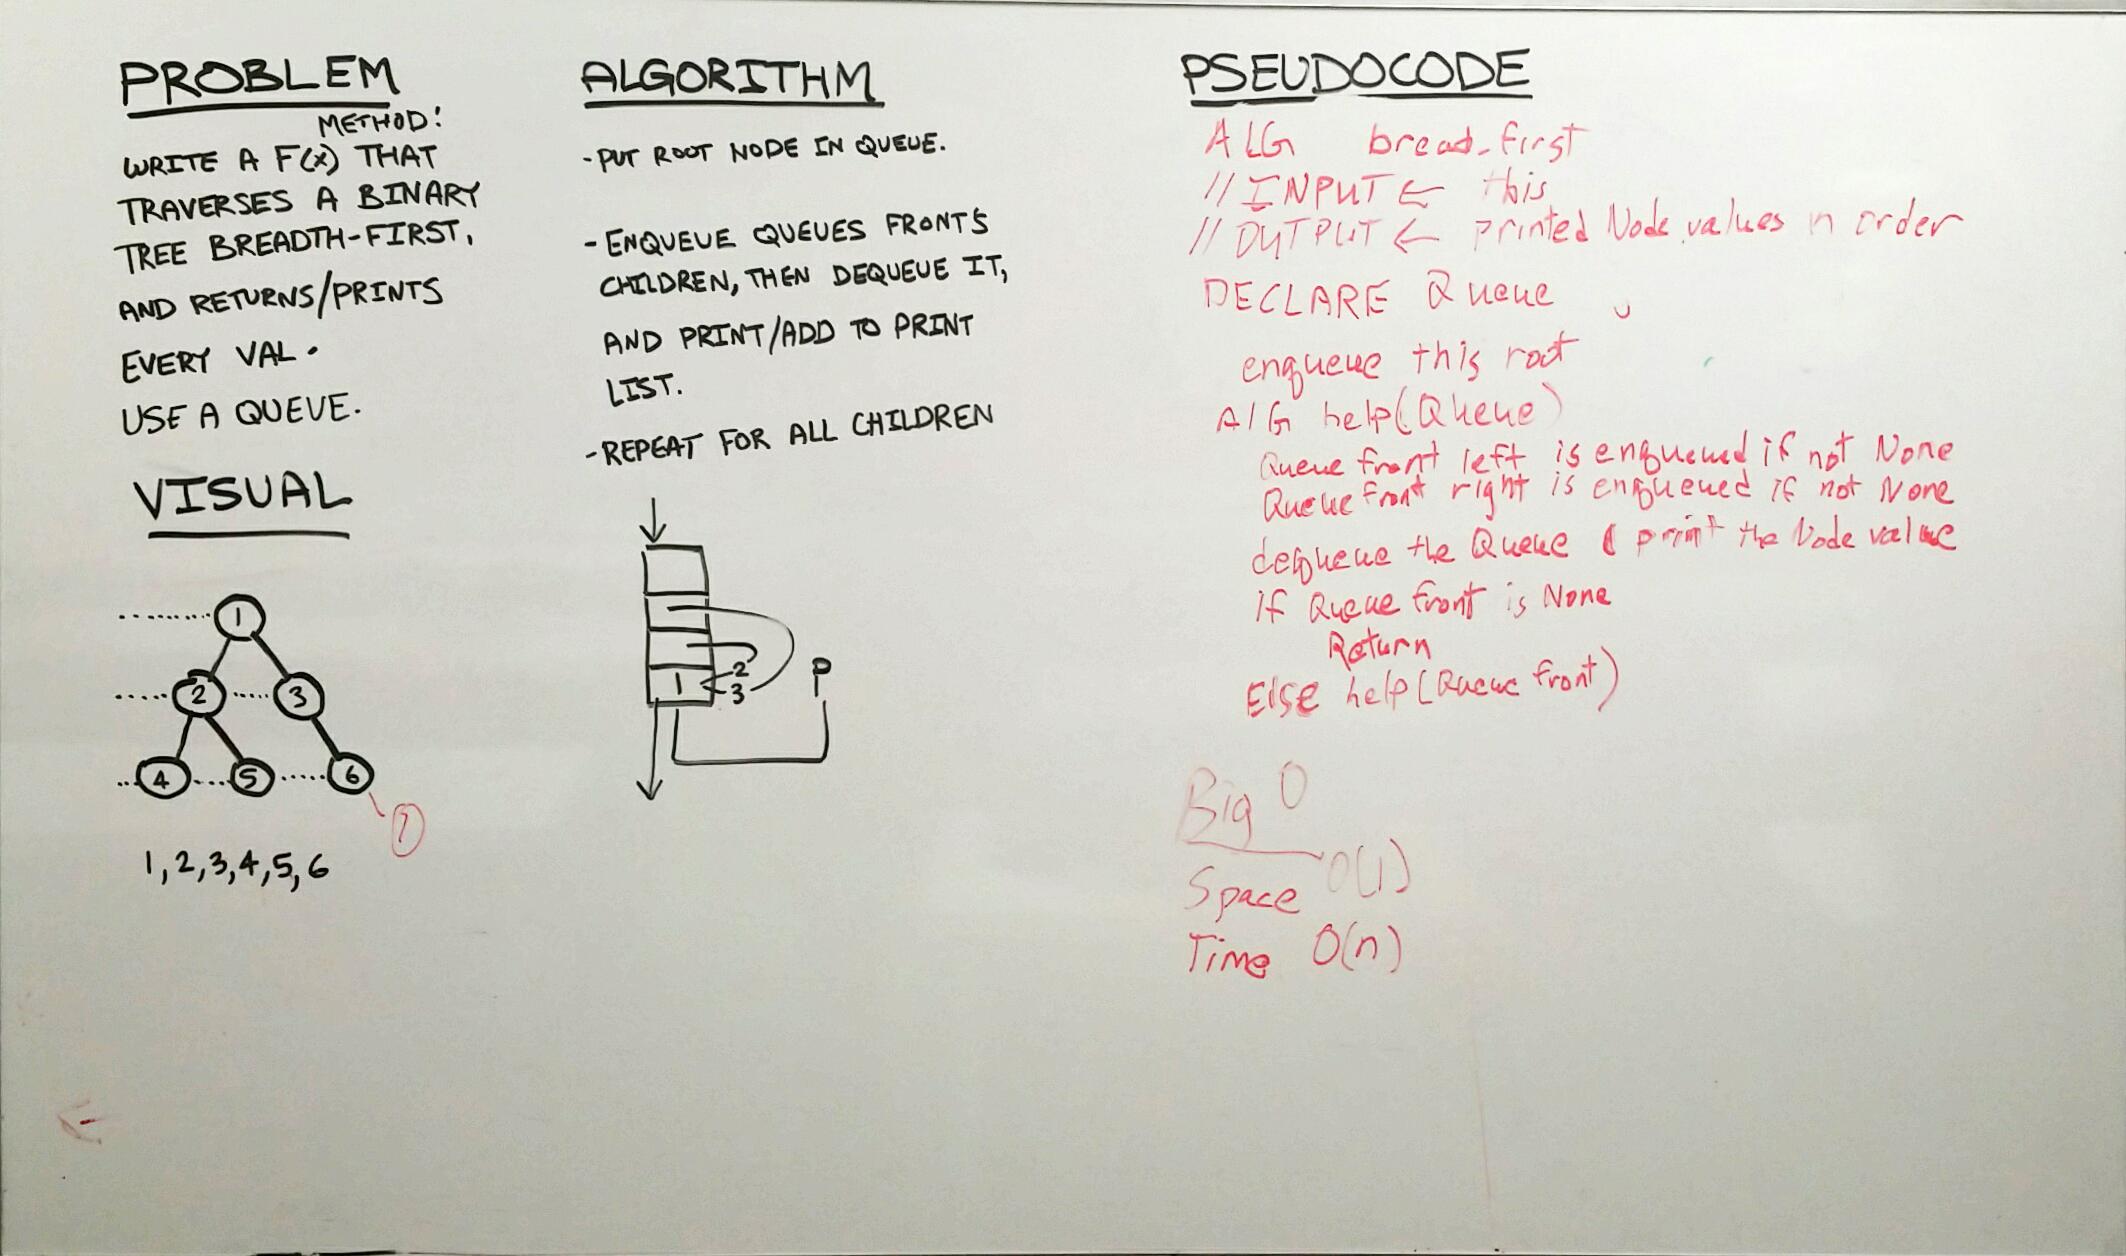 PROBLEM
METHOD!
WRITE A F(X) THAT
TRAVERSES A BINARY
TREE BREADTH-FIRST,
AND RETURNS/PRINTS
EVERY VAL.
USE A QUEUE.
VISUAL
1
2 3
4 5 6
7
1,2,3,4,5,6
ALGORITHM
-PUT ROOT NODE IN QUEUE.
-ENQUEUE QUEUES FRONTS
CHILDREN, THEN DEQUEUE IT,
AND PRINT/ADD TO PRINT
LIST.
-REPEAT FOR ALL CHILDREN
2
1
3
P
PSEUDOCODE
ALG bread-first
// INPUT ← this
// OUTPUT ← printed Node values in order
DECLARE Queue
enqueue this root
AlG help(Queue)
Queue front left is enqueued if not None
Queue front right is enqueued if not None
dequeue the Queue & print the Node value
if Queue front is None
Return
Else help(Queue front)
Big O
Space O(1)
Time O(n)